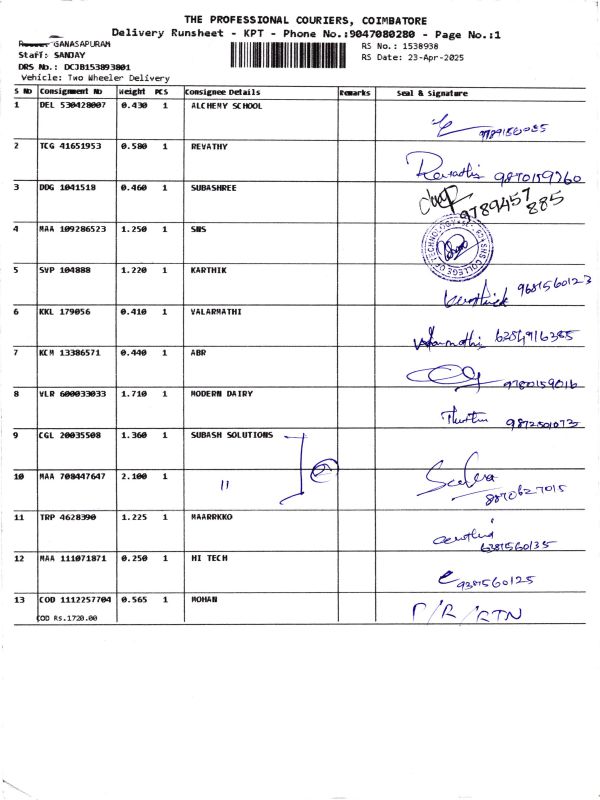 THE PROFESSIONAL COURIERS, COIMBATORE
Delivery Runsheet - KPT - Phone No.:9047080280 - Page No.:1
GANASAPURAM
RS No.: 1538938
Staff: SANJAY
RS Date: 23-Apr-2025
DRS No.: DCJB153893801
Vehicle: Two Wheeler Delivery
S No Consignment No Weight PCS Consignee Details Remarks Seal & Signature
1 DEL 530428007 0.430 1 ALCHEMY SCHOOL
2 TCG 41651953 0.580 1 REVATHY Revathi 9870159260
3 DDG 1041518 0.460 1 SUBASHREE 9789457885
4 MAA 109286523 1.250 1 SNS COLLEGE OF TECHNOLOGY
5 SVP 104888 1.220 1 KARTHIK Karthick 9681560123
6 KKL 179056 0.410 1 VALARMATHI Valarmathi
7 KCM 13386571 0.440 1 ABR 9780159016
8 VLR 600033033 1.710 1 MODERN DAIRY
9 CGL 20035508 1.360 1 SUBASH SOLUTIONS
10 MAA 708447647 2.100 1 " 8870627015
11 TRP 4628390 1.225 1 MAARRKKO 6381560135
12 MAA 111071871 0.250 1 HI TECH 9381560125
13 COD 1112257704 0.565 1 MOHAN r/R/RTN
COD Rs.1720.00